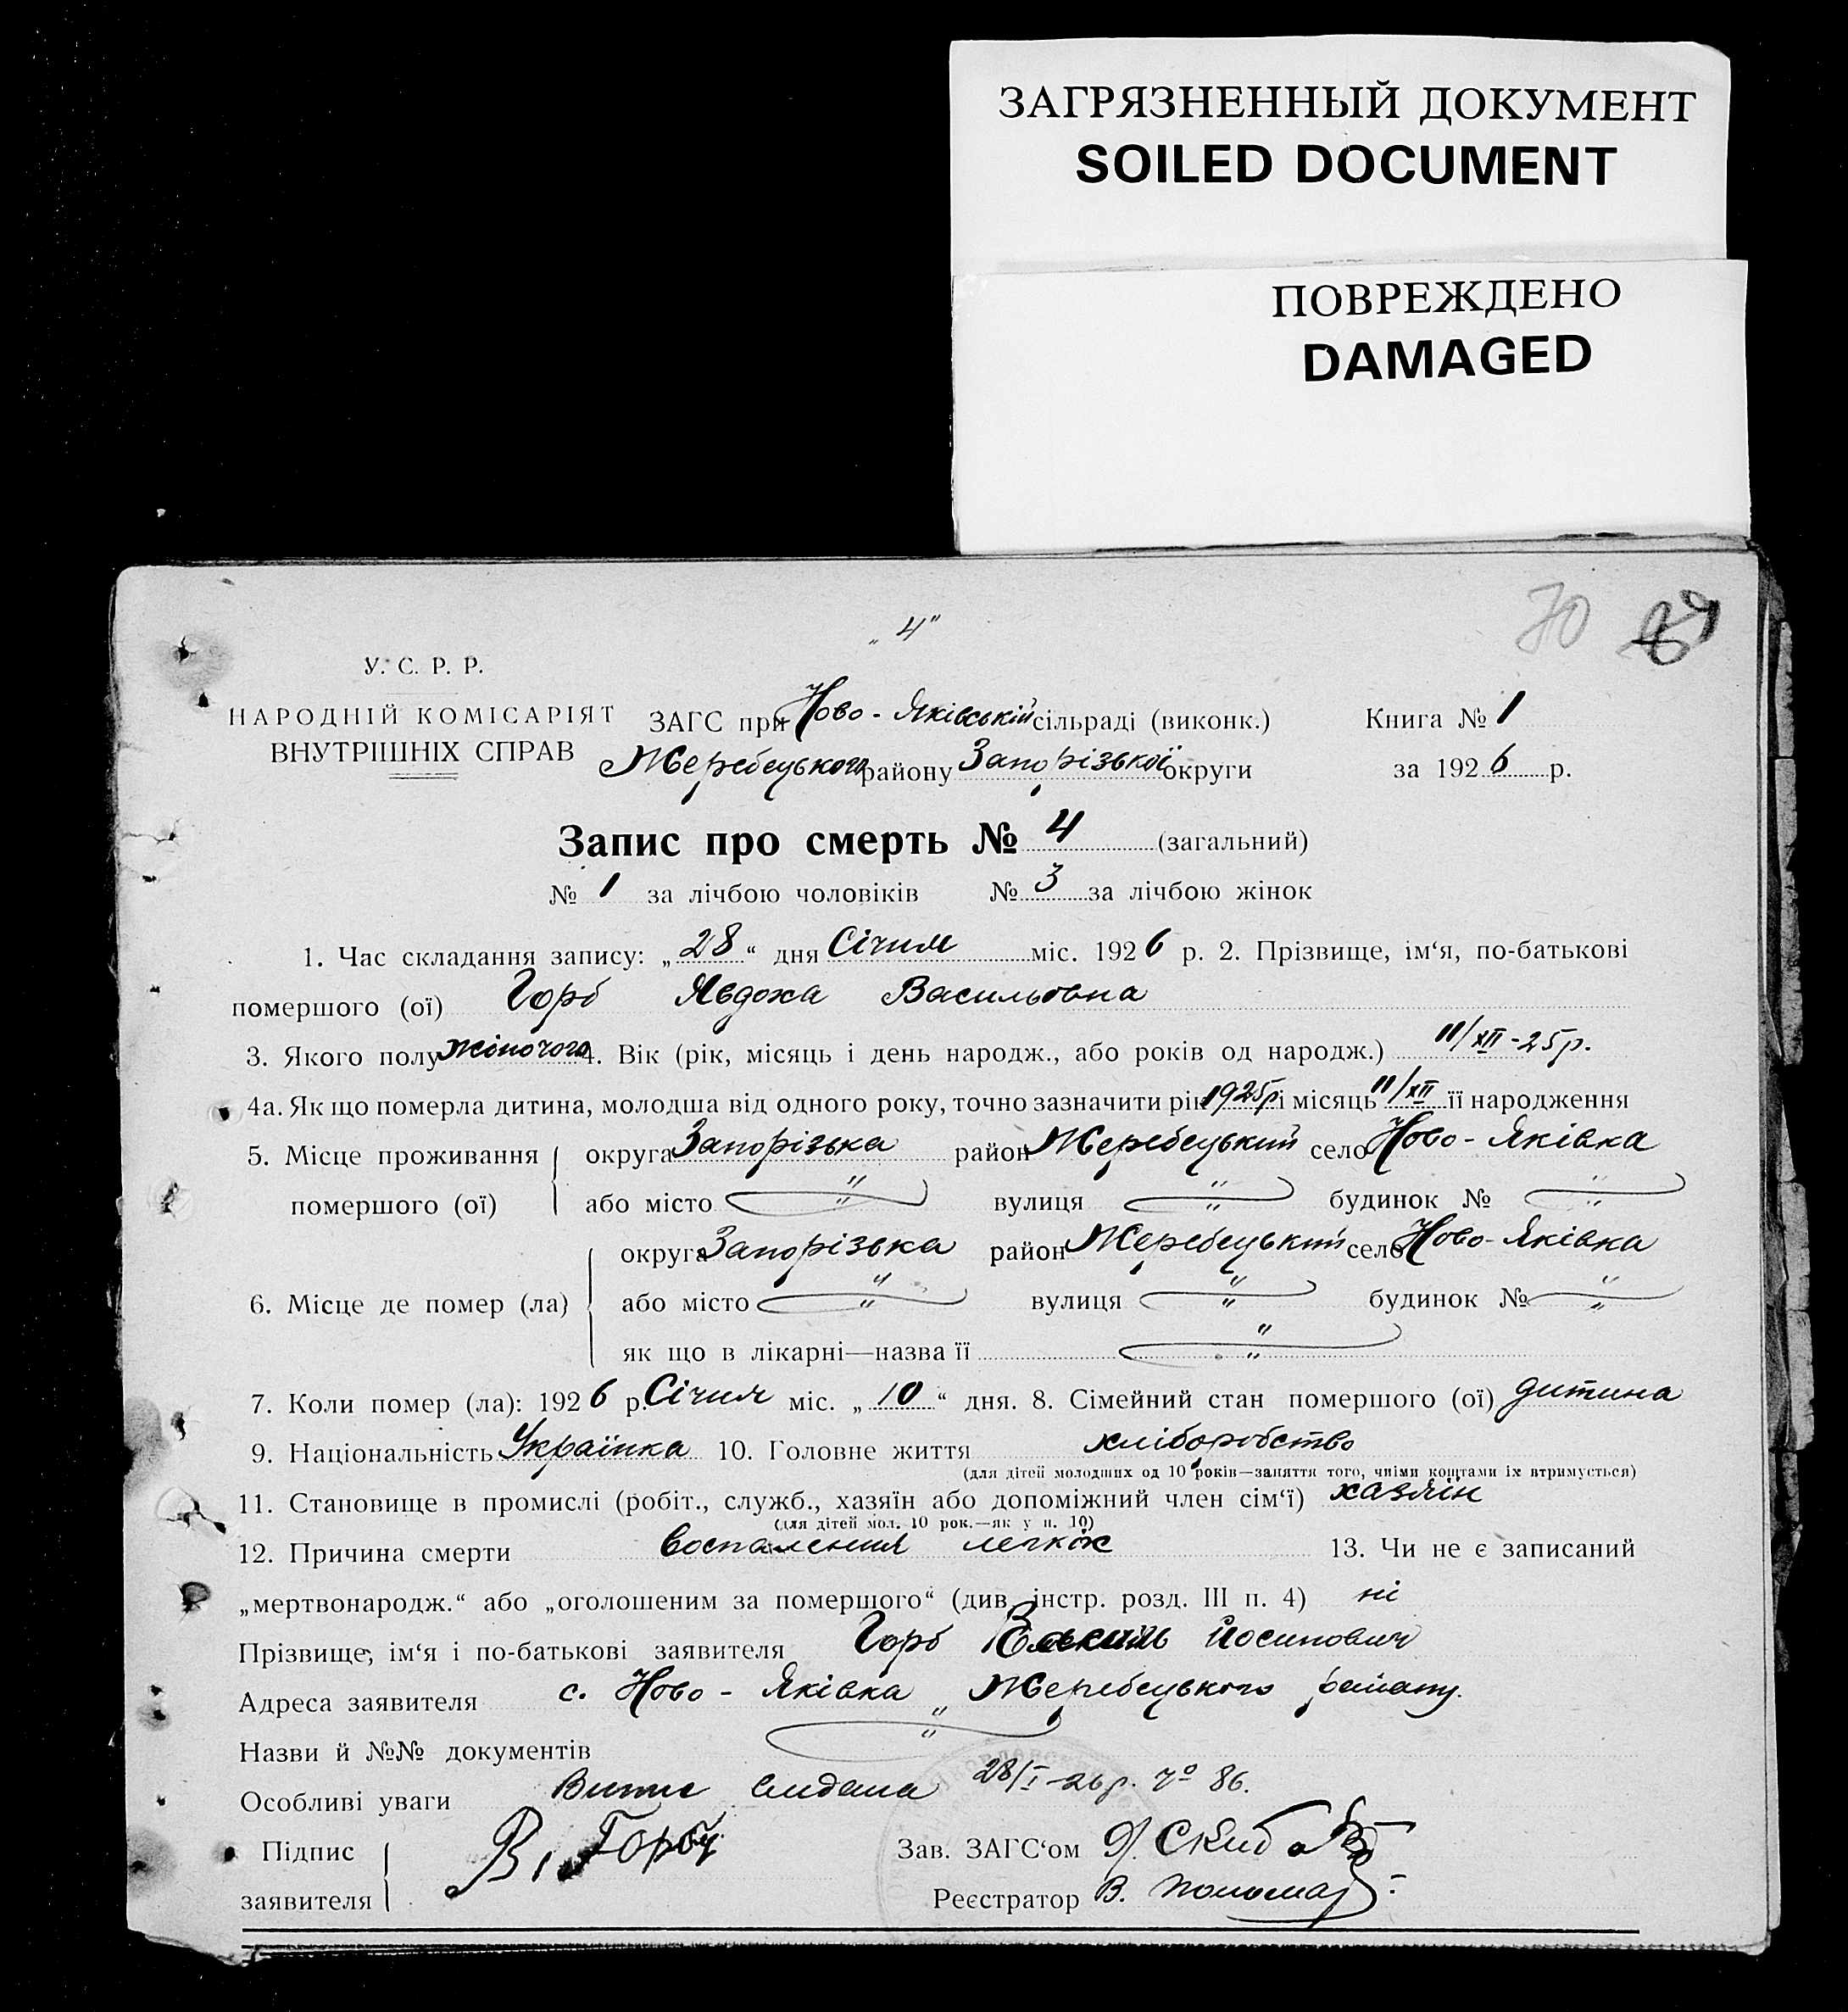 ЗАГРЯЗНЕННЫЙ ДОКУМЕНТ
SOILED DOCUMENT
ПОВРЕЖДЕНО
DAMAGED
70
„4"
У. С. Р. Р.
НАРОДНІЙ КОМІСАРІЯТ
ВНУТРІШНІХ СПРАВ
ЗАГС при Ново-Яківській сільраді (виконк.) Книга № 1
Жеребецького району Запорізької округи за 1926 р.
Запис про смерть № 4 (загальний)
№ 1 за лічбою чоловіків № 3 за лічбою жінок
1. Час складання запису: „28" дня Січня міс. 1926 р. 2. Прізвище, ім‘я, по-батькові
помершого (ої) Горб Явдоха Васильовна
3. Якого полу жіночого 4. Вік (рік, місяць і день народж., або років од народж.) 11/XII-25р.
4а. Як що померла дитина, молодша від одного року, точно зазначити рік 1925р і місяць 11/XII її народження
5. Місце проживання округа Запорізька район Жеребецький село Ново-Яківка
помершого (ої) або місто " вулиця " будинок № "
округа Запорізька район Жеребецький село Ново-Яківка
6. Місце де помер (ла) або місто " вулиця " будинок № "
як що в лікарні—назва її "
7. Коли помер (ла): 1926 р. Січня міс. „10" дня. 8. Сімейний стан помершого (ої) дитина
9. Національність Українка 10. Головне життя хліборобство
(для дітей молодших од 10 років—заняття того, чиїми коштами їх втримується)
11. Становище в промислі (робіт., служб., хазяїн або допоміжний член сім‘ї) хазяїн
(для дітей мол. 10 рок.—як у п. 10)
12. Причина смерти воспаления легкіх 13. Чи не є записаний
„мертвонародж." або „оголошеним за помершого" (див. інстр. розд. III п. 4) ні
Прізвище, ім‘я і по-батькові заявителя Горб Василь Йосипович
Адреса заявителя с. Ново-Яківка Жеребецького району.
Назви й №№ документів "
Особливі уваги Випис видана 28/I-26р. № 86.
Підпис В. Горб Зав. ЗАГС‘ом
заявителя Реєстратор В.